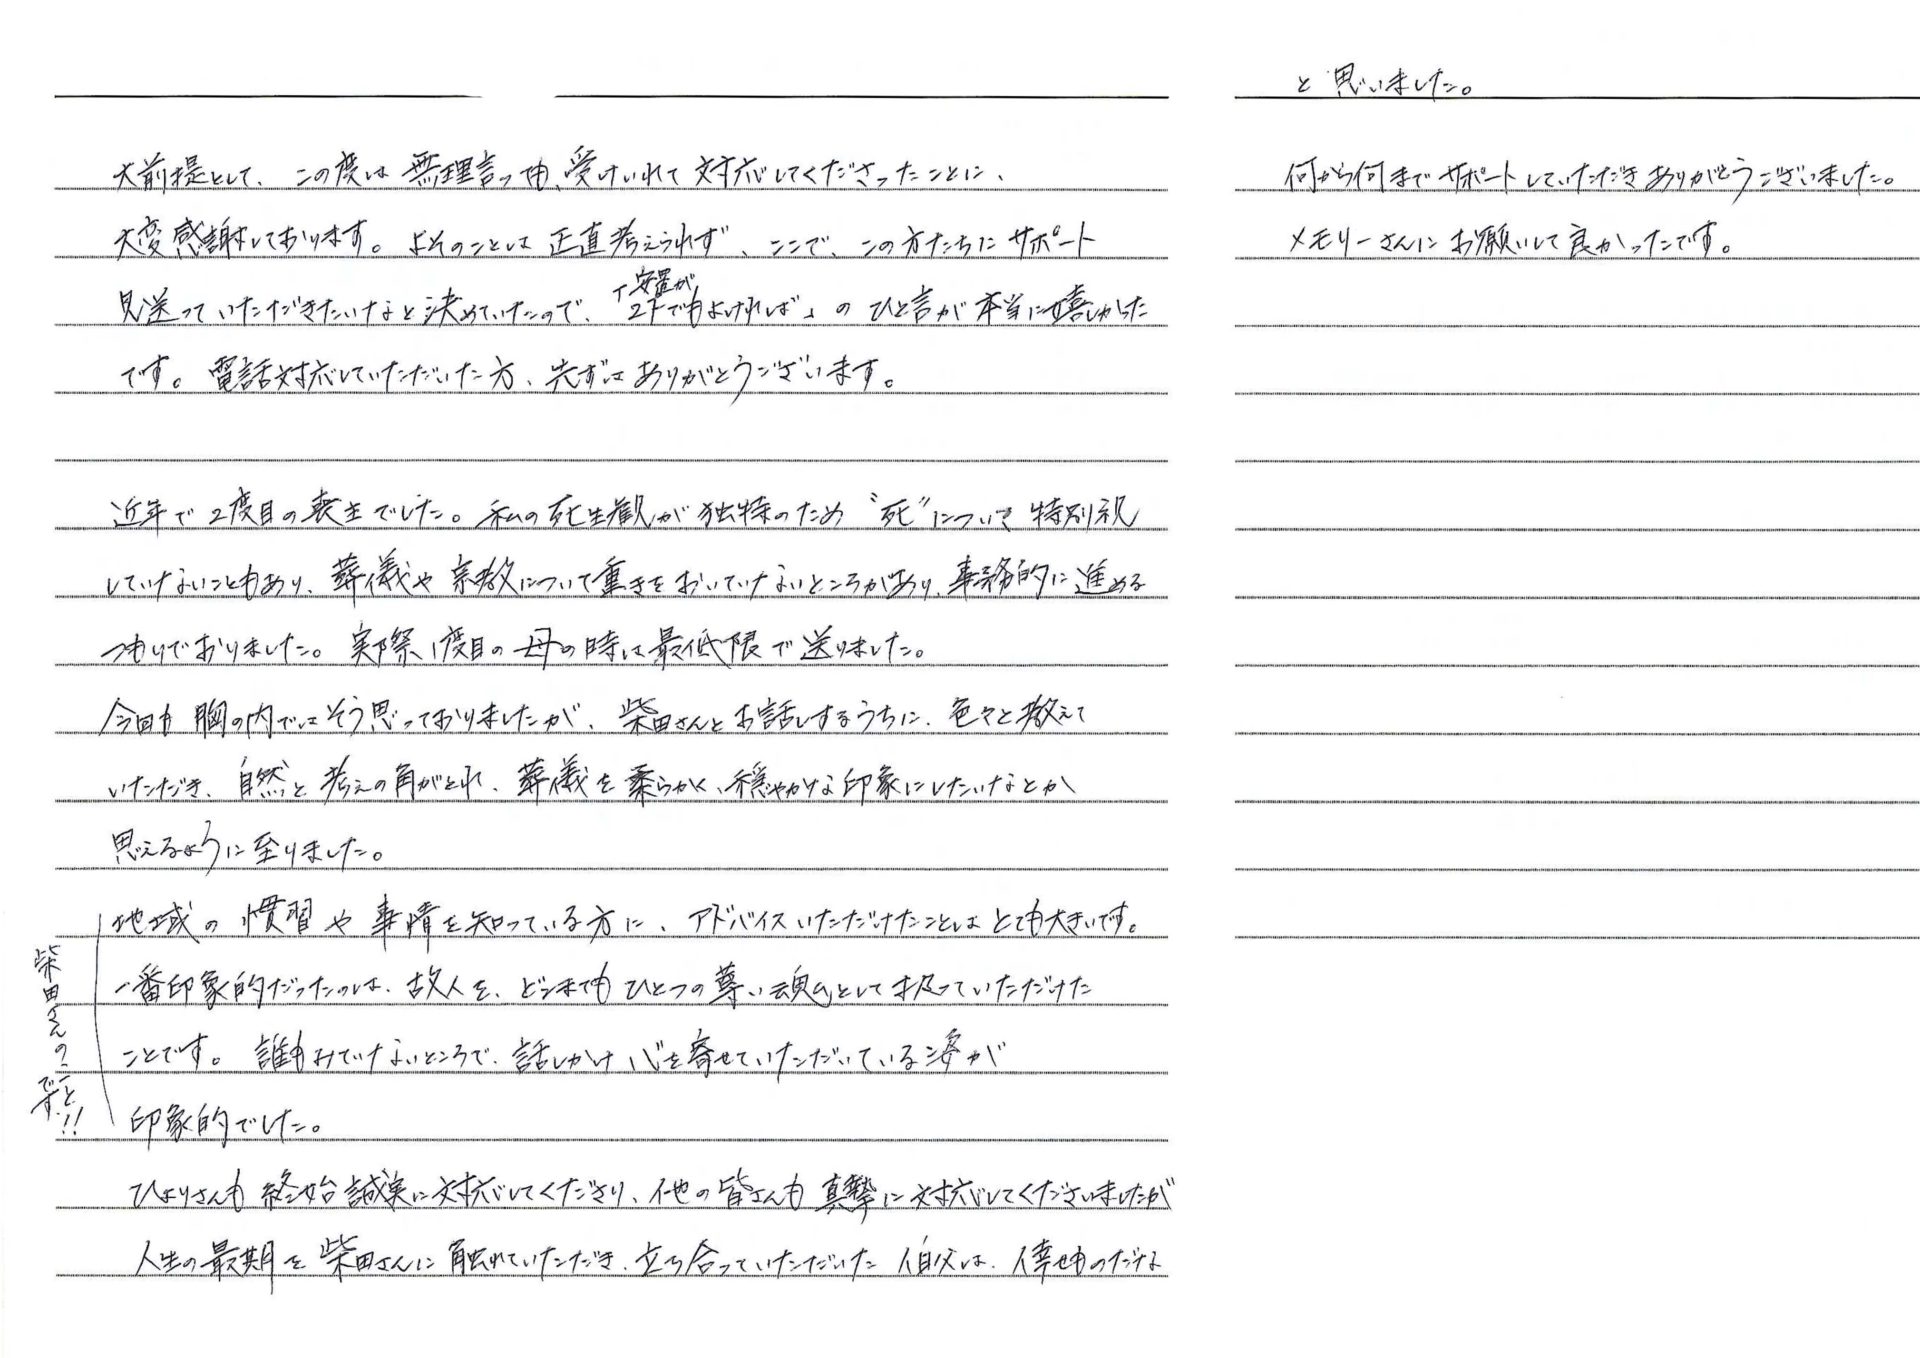 大前提として、この度は無理言っ中、受けいれて対応してくださったことに、
大変感謝しております。よそのことは正直考えられず、ここで、この方たちにサポート
見送っていただきたいなと決めていたので、「安置が
でもよければ」のひと言が本当に嬉しかった
です。電話対応していただいた方、先ずはありがとうございます。
近年で2度目の喪主でした。私の死生観が独特のため“死”について特別視
していないこともあり、葬儀や宗教について重きをおいていないところがあり、事務的に進める
つもりでおりました。実際1度目の母の時は最低限で送りました。
今回も胸の内ではそう思っておりましたが、柴田さんとお話しするうちに、色々と教えて
いただき、自然と考えの角がとれ、葬儀を柔らかく、穏やかな印象にしたいなとか
思えるように至りました。
地域の慣習や事情を知っている方に、アドバイスいただけたことはとても大きいです。
一番印象的だったのは、故人を、どこまでもひとつの尊い魂として扱っていただけた
ことです。誰もみていないところで、話しかけ心を寄せていただいている姿が
印象的でした。
柴田さんのことです!!
ひよりさんも終始誠実に対応してくださり、他の皆さんも真摯に対応してくださいましたが
人生の最期を柴田さんに触れていただき、立ち合っていただいた伯父は、倖せものだな
と思いました。
何から何までサポートしていただきありがとうございました。
メモリーさんにお願いして良かったです。